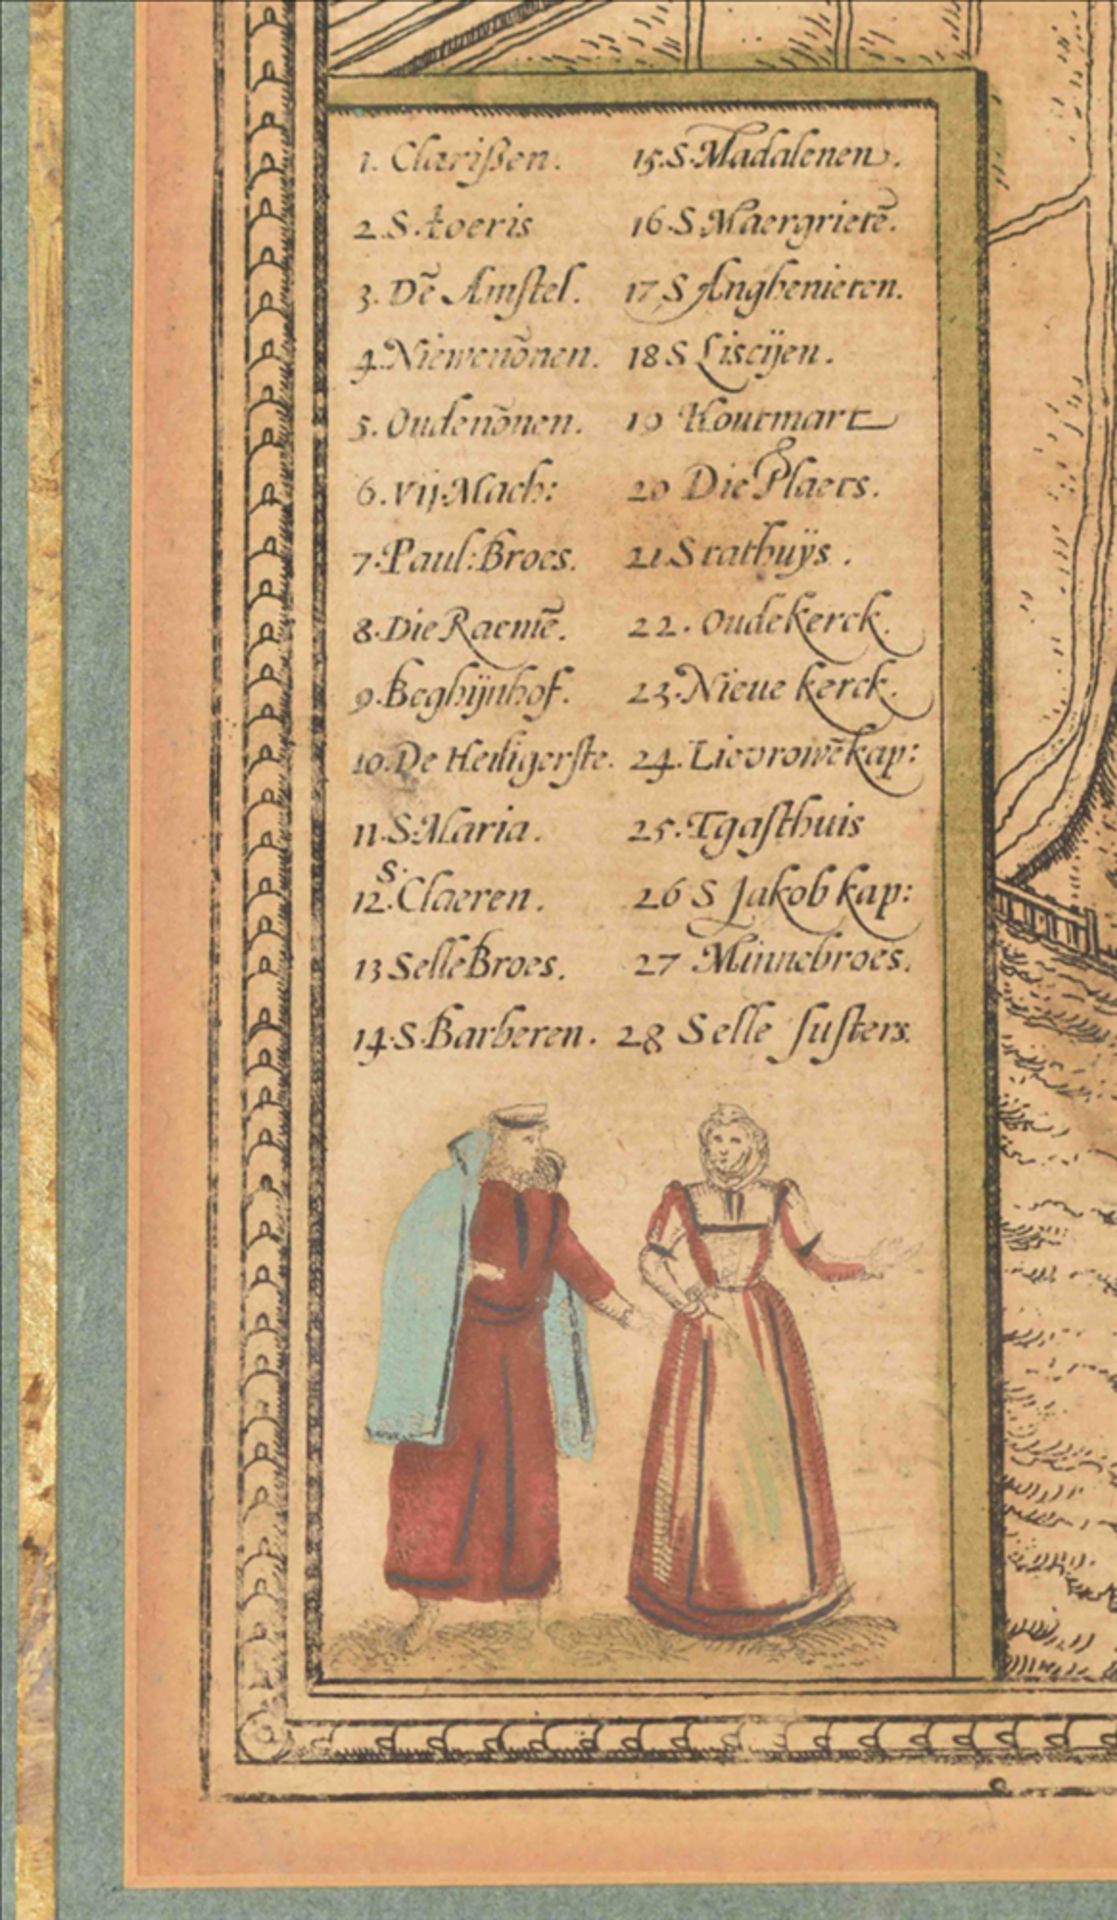 1. Clarißen.
2. S. Joeris
3. Dē Amstel.
4. Niewenōnen.
5. Oudenōnen.
6. vij. Mach:
7. Paul: Broes.
8. Die Raemē.
9. Beghijnhof.
10. De Heiligerste.
11. S. Maria.
12. S. Claeren.
13 Selle Broes.
14. S. Barberen.
15. S. Madalenen.
16. S. Maergrietē.
17. S Anghenieten.
18 S Liscijen.
19 Houtmart
20 Die Plaets.
21 Stathuÿs.
22. Oude kerck.
23. Nieue kerck.
24. Lievrowēkap:
25. Tgasthuis
26 S Jakob kap:
27 Minnebroes.
28 Selle susters.